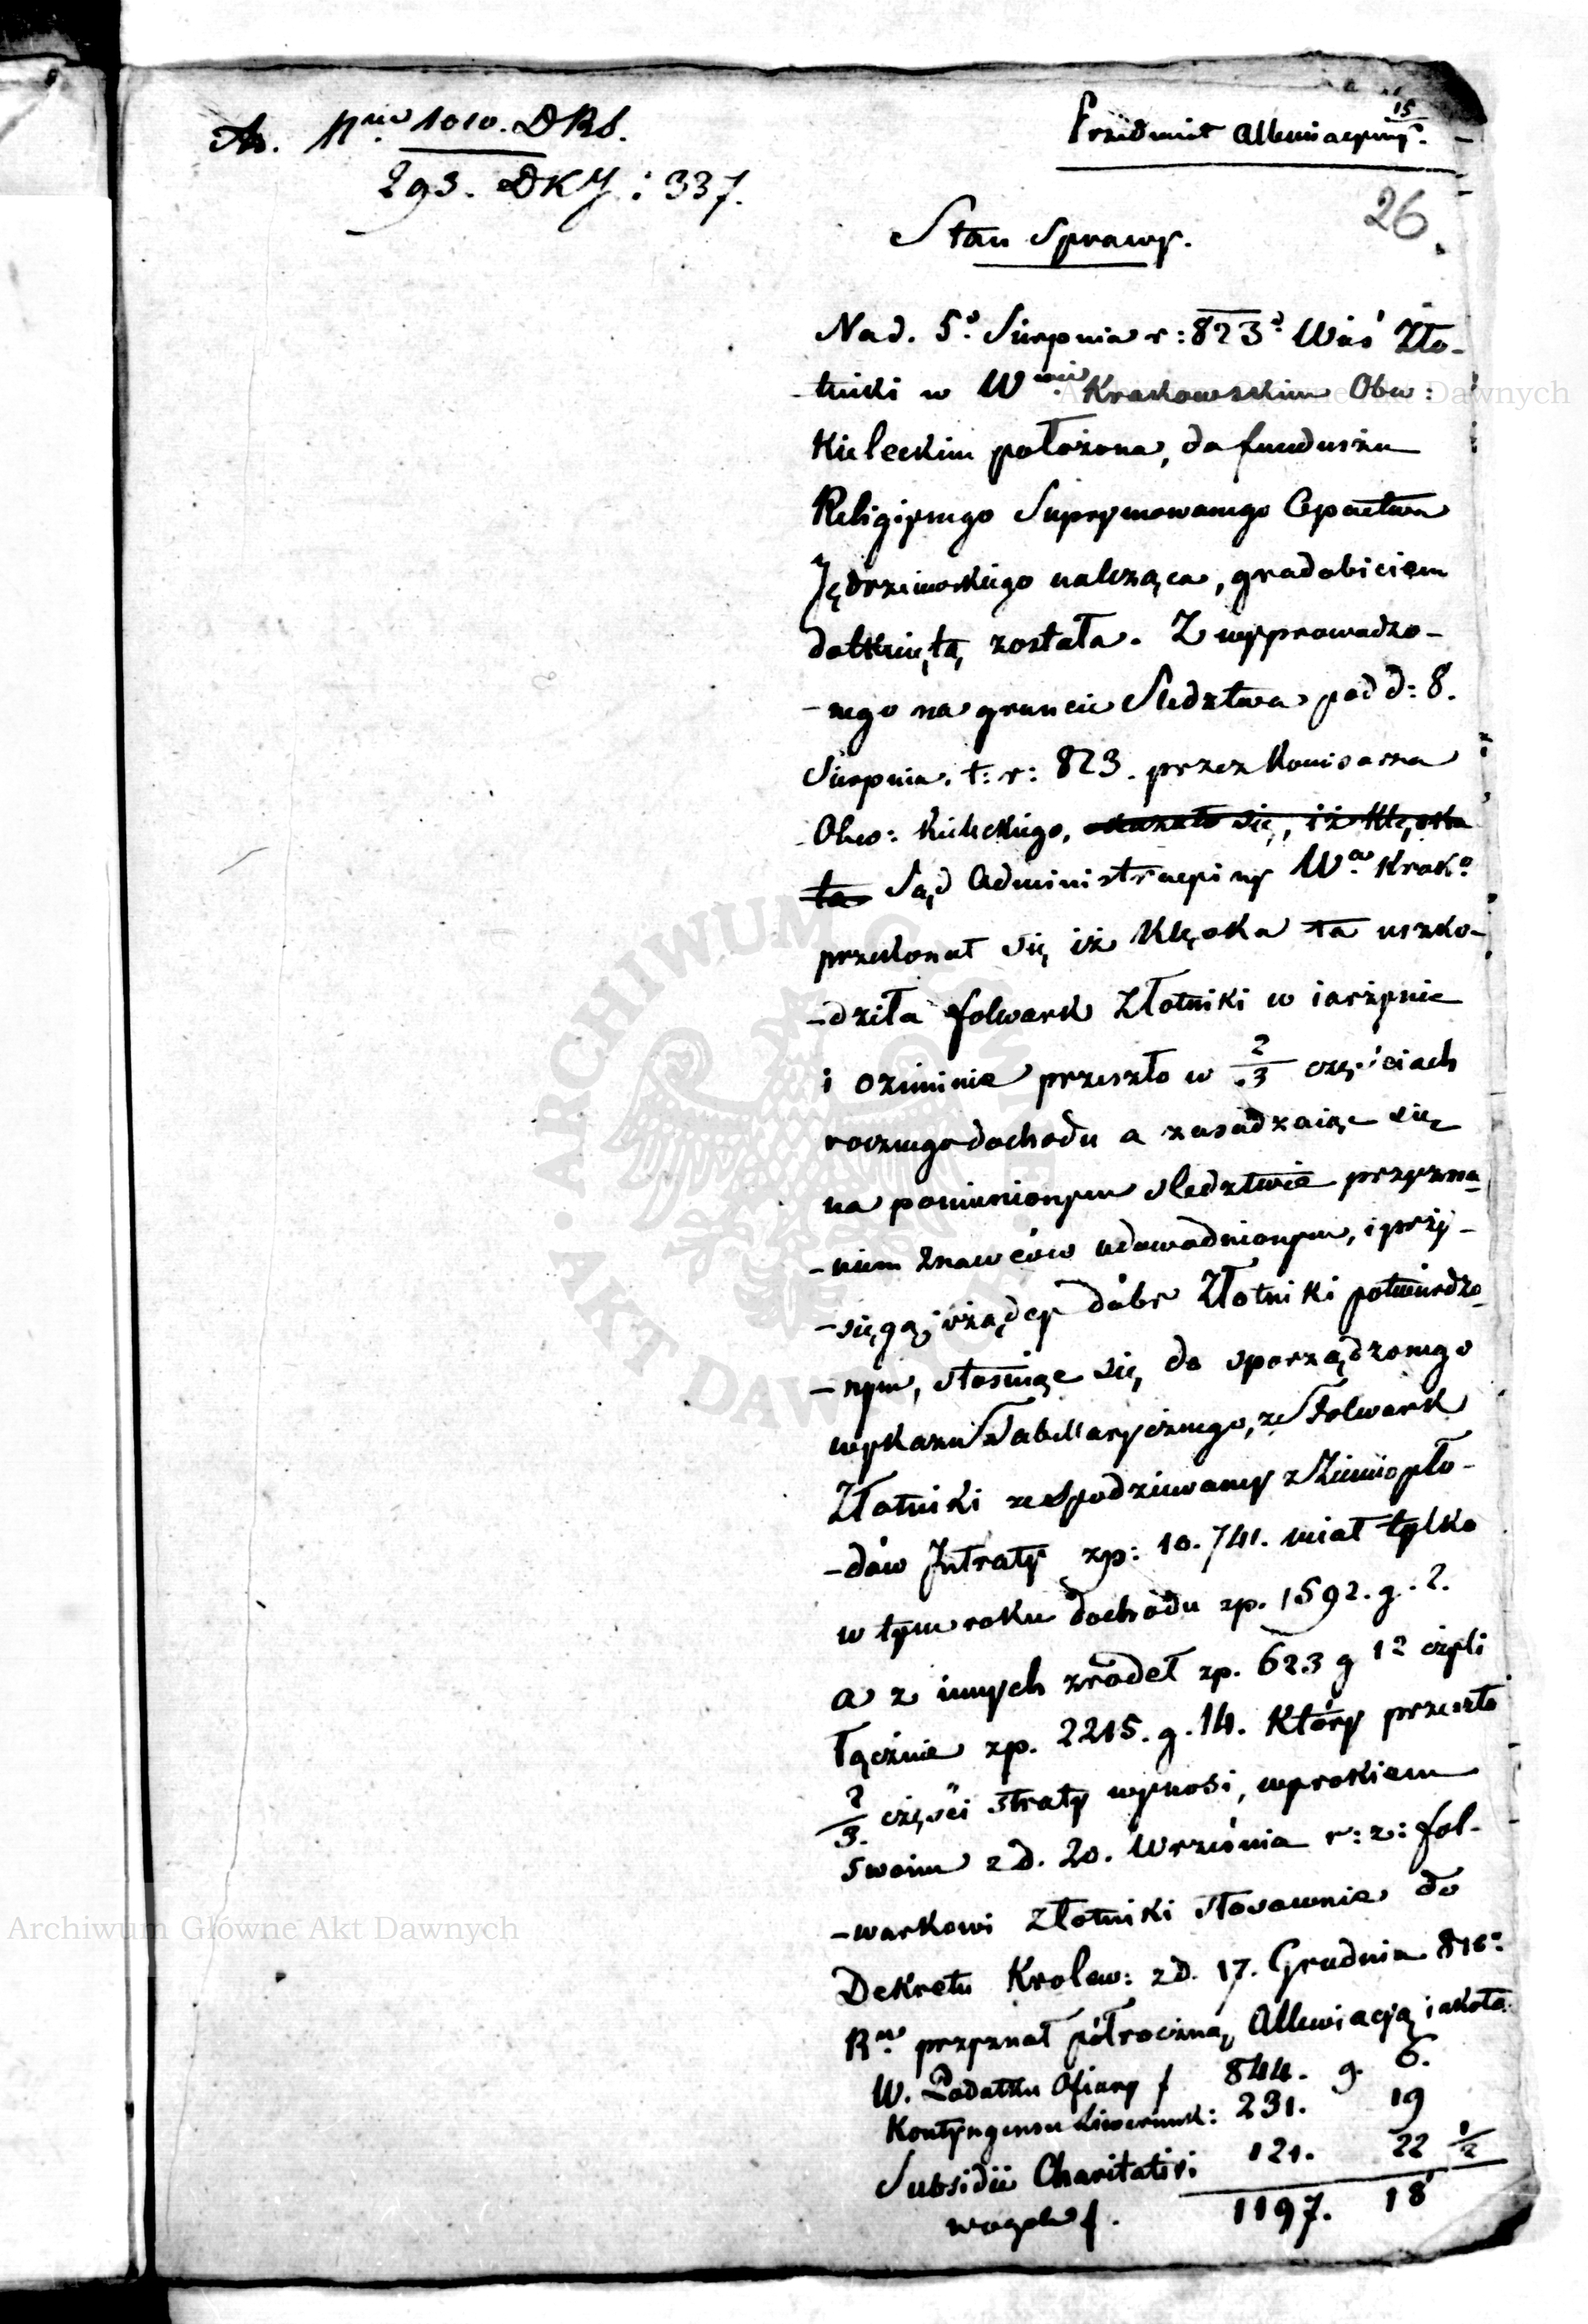 Ad. Nrw 1010. DRS.
293. DKJ: 337.
Przedmiot Allewiacyiny.
15
26
Stan Sprawy.
Na d. 5o Sierpnia r: 823o Wieś Zło-
-tniki w Wwie Krakowskim Obw:
Kieleckim położona, do funduszu
Religiynego Suprymowanego Opactwa
Jędrzeiowskiego należąca, gradobiciem
dotkniętą została. Z wyprowadzo-
-nego na gruncie Sledztwa pod d: 8.
Sierpnia. t: r: 823. przez Komisarza
Obwo: Kieleckiego, okazało się, iż klęska
ta Sąd Administracyiny Wa Krako
przekonał się iż klęska ta uszko-
-dziła folwark Złotniki w iarzynie
i oziminie przeszło w 2/3 częściach
rocznego dochodu a zasadzaiąc się
na pomienionym sledztwie przyzna-
-niem znawców udowodnionym, i przy-
-sięgą rządcy dóbr Złotniki potwierdzo-
-nym, stosuiąc się do sporządzonego
wykazu Tabellarycznego, że Folwark
Złotniki ze spodziewaney z Ziemiopło-
-dów Intraty zp: 10.741. miał tylko
w tym roku dochodu zp. 1592. g. 2.
a z innych zrodeł zp. 623 g 12 czyli
łącznie zp. 2215. g. 14. Który przeszło
2/3. części straty wynosi, wyrokiem
swoim z d. 20. Września r: z: fol-
-warkowi Złotniki stosownie do
Dekretu Krolew: z d. 17. Grudnia 816o
Ru przyznał półroczną Allewiacyą iakoto
W. Podatku Ofiary f 844. g. 6.
Kontyngensu Liwerunk: 231. 19
Subsidii Charitativi 121. 22 1/2
wogole f. 1197. 18
Archiwum Główne Akt Dawnych
Archiwum Główne Akt Dawnych
ARCHIWUM GŁÓWNE AKT DAWNYCH